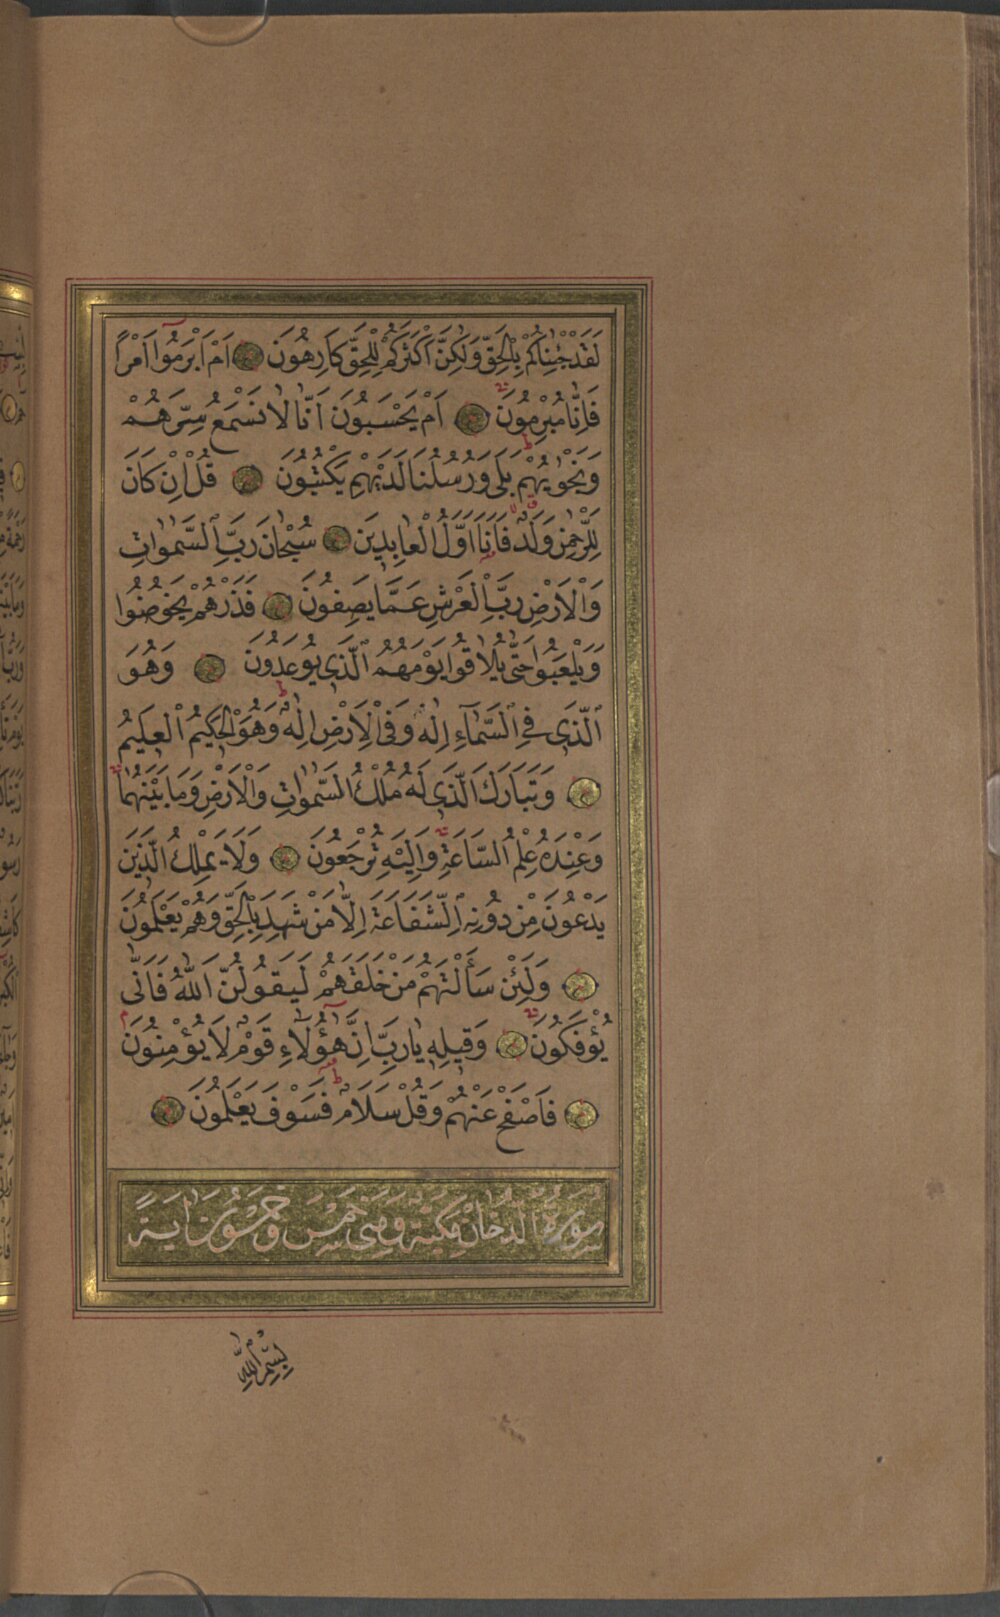 لَقَدْ جِئْنَاكُمْ بِالْحَقِّ وَلٰكِنَّ اَكْثَرَكُمْ لِلْحَقِّ كَارِهُونَ اَمْ اَبْرَمُٓوا اَمْرًا
فَاِنَّا مُبْرِمُونَ اَمْ يَحْسَبُونَ اَنَّا لَا نَسْمَعُ سِرَّهُمْ
وَنَجْوٰيهُمْ بَلٰى وَرُسُلُنَا لَدَيْهِمْ يَكْتُبُونَ قُلْ اِنْ كَانَ
لِلرَّحْمٰنِ وَلَدٌ فَاَنَا اَوَّلُ الْعَابِدِينَ سُبْحَانَ رَبِّ السَّمٰوَاتِ
وَالْاَرْضِ رَبِّ الْعَرْشِ عَمَّا يَصِفُونَ فَذَرْهُمْ يَخُوضُوا
وَيَلْعَبُوا حَتّٰى يُلَاقُوا يَوْمَهُمُ الَّذِي يُوعَدُونَ وَهُوَ
الَّذِي فِي السَّمَٓاءِ اِلٰهٌ وَفِي الْاَرْضِ اِلٰهٌ وَهُوَ الْحَكِيمُ الْعَلِيمُ
وَتَبَارَكَ الَّذِي لَهُ مُلْكُ السَّمٰوَاتِ وَالْاَرْضِ وَمَا بَيْنَهُمَا
وَعِنْدَهُ عِلْمُ السَّاعَةِ وَاِلَيْهِ تُرْجَعُونَ وَلَا يَمْلِكُ الَّذِينَ
يَدْعُونَ مِنْ دُونِهِ الشَّفَاعَةَ اِلَّا مَنْ شَهِدَ بِالْحَقِّ وَهُمْ يَعْلَمُونَ
وَلَئِنْ سَأَلْتَهُمْ مَنْ خَلَقَهُمْ لَيَقُولُنَّ اللّٰهُ فَاَنّٰى
يُؤْفَكُونَ وَقِيلِهِ يَا رَبِّ اِنَّ هٰٓؤُلَٓاءِ قَوْمٌ لَا يُؤْمِنُونَ
فَاصْفَحْ عَنْهُمْ وَقُلْ سَلَامٌ فَسَوْفَ يَعْلَمُونَ
سُورَةُ الدُّخَانِ مَكِّيَّةٌ وَهِيَ خَمْسٌ وَخَمْسُونَ اٰيَةً
بِسْمِ اللّٰهِ